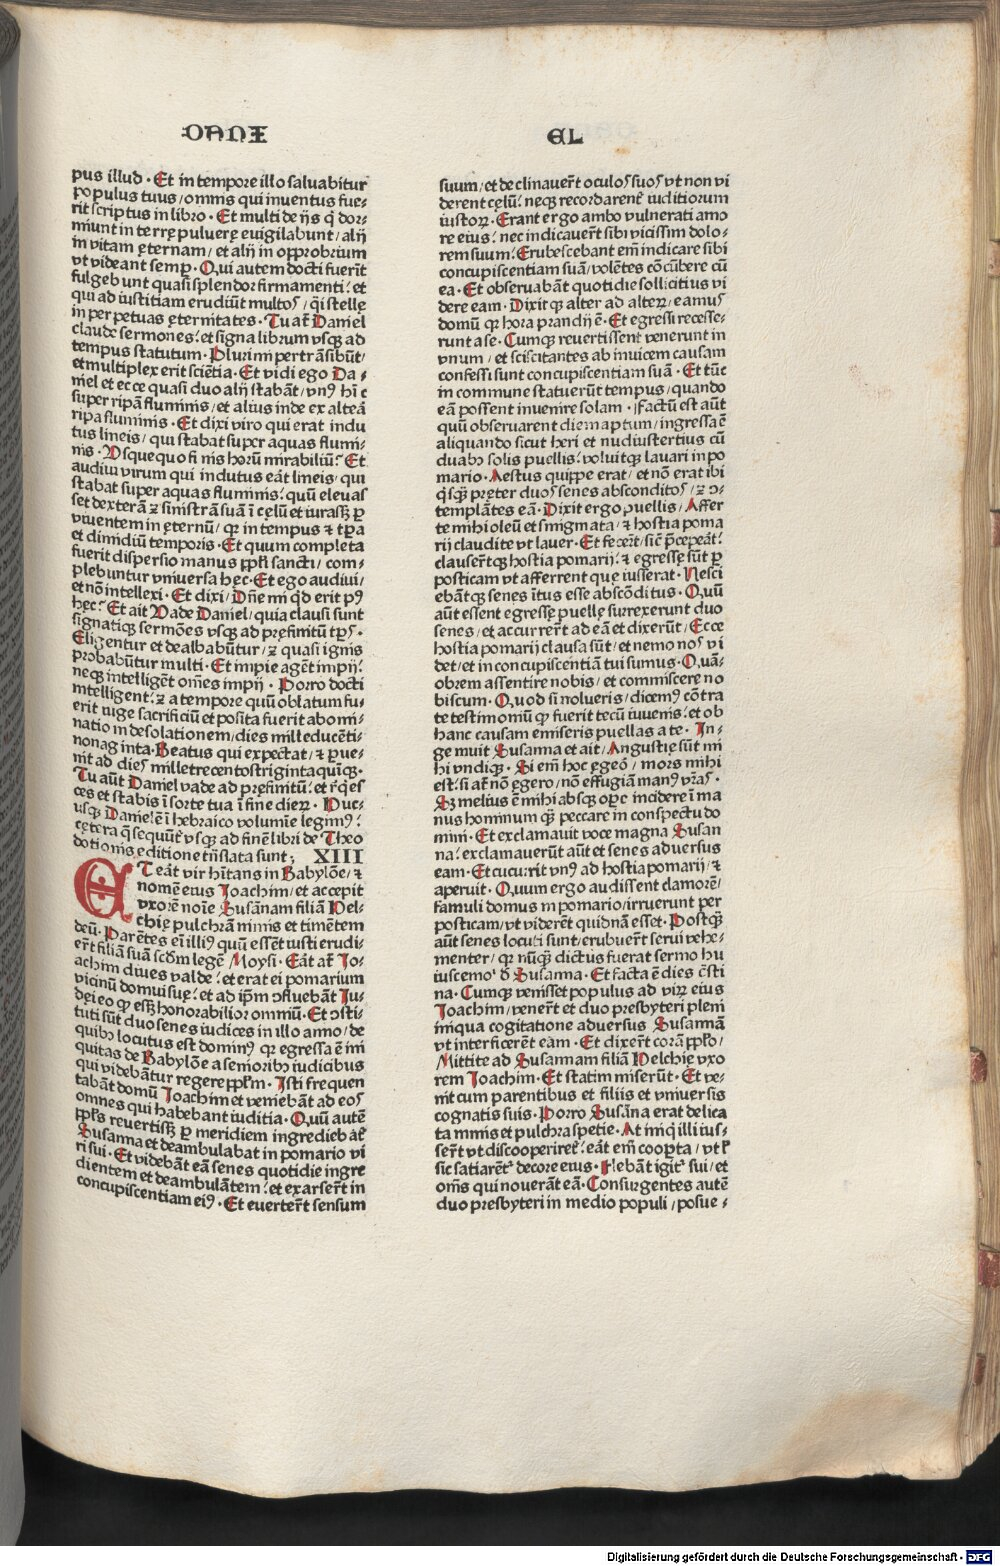 DANI EL
pus illud · Et in tempore illo saluabitur
populus tuus / omnis qui inuentus fue-
rit scriptus in libro · Et multi de ijs q̄ dor-
miunt in terrę puluere euigilabunt / alij
in vitam ęternam / et alij in opprobrium
vt videant semꝑ · Qui autem docti fuerīt
fulgebunt quasi splendor firmamenti: et
qui ad iustitiam erudiūt multos / q̄si stellę
in perpetuas ęternitates · Tu aūt Daniel
claude sermones: et signa librum vsq̧ ad
tempus statutum · Plurimi pertrāsibūt /
et multiplex erit sciētia · Et vidi ego Da-
niel et ecce quasi duo alij stabāt / vnꝰ hīc
super ripā fluminis / et alius inde ex alteā
ripa fluminis · Et dixi viro qui erat indu
tus lineis / qui stabat super aquas flumi-
nis · Vsquequo finis horū mirabiliū? Et
audiui virum qui indutus eāt lineis / qui
stabat super aquas fluminis: quū eleuas
set dexterā ⁊ sinistrā suā ī cęlū et iurassꝫ ꝑ
viuentem in ęternū / qꝛ in tempus ⁊ tp̄a
et dimidiū temporis · Et quum completa
fuerit dispersio manus ppl̄i sancti / com-
plebuntur vniuersa hęc · Et ego audiui /
et nō intellexi · Et dixi / Dn̄e mi qd erit pꝰ
hęc? Et ait Vade Daniel / quia clausi sunt
signatiq̧ sermōes vsq̧ ad pręfinitū tp̄s ·
Eligentur et dealbabūtur / ⁊ quasi ignis
probabūtur multi · Et impie agēt impij:
neq̧ intelligēt om̄es impij · Porro docti
intelligent: ⁊ a tempore quū oblatum fu-
erit iuge sacrificiū et posita fuerit abomi-
natio in desolationem / dies mille ducēti-
nonaginta · Beatus qui expectat / ⁊ ꝑue-
nit ad dies mille trecentos triginta quīq̧ ·
Tu aūt Daniel vade ad pręfinitū: et rq̄es
ces et stabis ī sorte tua ī fine dierꝝ · Huc-
usq̧ Danielē ī hebraico volumīe legimꝰ:
cętera q̄ sequūt vsq̧ ad finē libri de Theo
dotionis editione trāslata sunt; XIII
ET eāt vir hītans in Babylōe / ⁊
nomē eius Joachim / et accepit
vxorē noīe Susānam filiā Hel-
chię pulchrā nimis et timētem
deū · Parētes eī illiꝰ quū essēt iusti erudi-
ert filiā suā scdm legē Moysi · Eāt aūt Jo-
achim diues valde: et erat ei pomarium
vicinū domui suę: et ad ipm ↄfluebāt Ju-
dęi eo qꝛ essꝫ honorabilior omniū · Et ↄsti-
tuti sūt duo senes iudices in illo anno / de
quibꝰ locutus est dominꝰ qꝛ egressa ē ini
quitas de Babylōe a senioribꝰ iudicibus
qui videbātur regere ppl̄m · Isti frequen
tabāt domū Joachim et veniebāt ad eos
omnes qui habebant iuditia · Quū autē
ppl̄s reuertissꝫ ꝑ meridiem ingrediebat̄
Susanna et deambulabat in pomario vi
ri sui · Et videbāt eā senes quotidie ingre
dientem et deambulātem: et exarsert̄ in
concupiscentiam eiꝰ · Et euertert̄ sensum
suum / et declinauert̄ oculos suos vt non vi
derent cęlū: neq̧ recordarent̄ iuditiorum
iustorꝝ · Erant ergo ambo vulnerati amo
re eius: nec indicauert̄ sibi vicissim dolo-
rem suum: Erubescebant em̄ indicare sibi
concupiscentiam suā / volētes cōcūbere cū
ea · Et obseruabāt quotidie sollicitius vi
dere eam · Dixitq̧ alter ad alterꝝ / eamus
domū qꝛ hora prandij ē · Et egressi recesse-
runt a se · Cumq̧ reuertissent venerunt in
vnum / et sciscitantes ab inuicem causam
confessi sunt concupiscentiam suā · Et tūc
in commune statuerūt tempus / quando
eā possent inuenire solam · Factū est aūt
quū obseruarent diem aptum / ingressa ē
aliquando sicut heri et nudiustertius cū
duabꝰ solis puellis: voluitq̧ lauari in po
mario · Aestus quippe erat / et nō erat ibi
q̄sq̄ pręter duos senes absconditos / ⁊ ↄ-
templātes eā · Dixit ergo puellis / Affer
te mihi oleū et smigmata / ⁊ hostia poma
rij claudite vt lauer · Et fecert̄ / sic p̄cepeāt:
clausert̄q̧ hostia pomarij: ⁊ egressę sūt ꝑ
posticam vt afferrent quę iusserat · Nesci
ebātq̧ senes ītus esse abscōditus · Quū
aūt essent egressę puellę surrexerunt duo
senes / et accurrert̄ ad eā et dixerūt / Ecce
hostia pomarij clausa sūt / et nemo nos vi
det / et in concupiscentiā tui sumus · Quā-
obrem assentire nobis / et commiscere no
biscum · Quod si nolueris / dicemꝰ cōtra
te testimoniū qꝛ fuerit tecū iuuenis: et ob
hanc causam emiseris puellas a te · In-
gemuit Susanna et ait / Angustię sūt mi
hi vndiq̧ · Si em̄ hoc ęgeō / mors mihi
est: si aūt nō ęgero / nō effugiā manꝰ vr̄as ·
Sꝫ melius ē mihi absq̧ opē incidere ī ma
nus hominum q̄ peccare in conspectu do
mini · Et exclamauit voce magna Susan
na: exclamauerūt aūt et senes aduersus
eam · Et cucurrit vnꝰ ad hostia pomarij / ⁊
aperuit · Quum ergo audissent clamorē /
famuli domus in pomario / irruerunt per
posticam / vt viderēt quidnā esset · Postq̄
aūt senes locuti sunt / erubuert̄ serui vehe-
menter / qꝛ nūq̄ dictus fuerat sermo hu
iuscemoⁱ ď Susanna · Et facta ē dies c̄sti
na · Cumq̧ venisset populus ad virꝝ eius
Joachim / venert̄ et duo presbyteri pleni
iniqua cogitatione aduersus Susannā
vt interficerēt eam · Et dixert̄ corā ppl̄o /
Mittite ad Susannam filiā Helchię vxo
rem Joachim · Et statim miserūt · Et ve-
nit cum parentibus et filiis et vniuersis
cognatis suis · Porro Susāna erat delica
ta nimis et pulchra spetie · At iniq̄ illi ius-
sert̄ vt discooperiret̄: eāt em̄ cooꝑta / vt ł
sic satiarēt̄ decore eius · Flebāt igit̄ sui / et
om̄s qui nouerāt eā · Consurgentes autē
duo presbyteri in medio populi / posue-
Digitalisierung gefördert durch die Deutsche Forschungsgemeinschaft - DFG